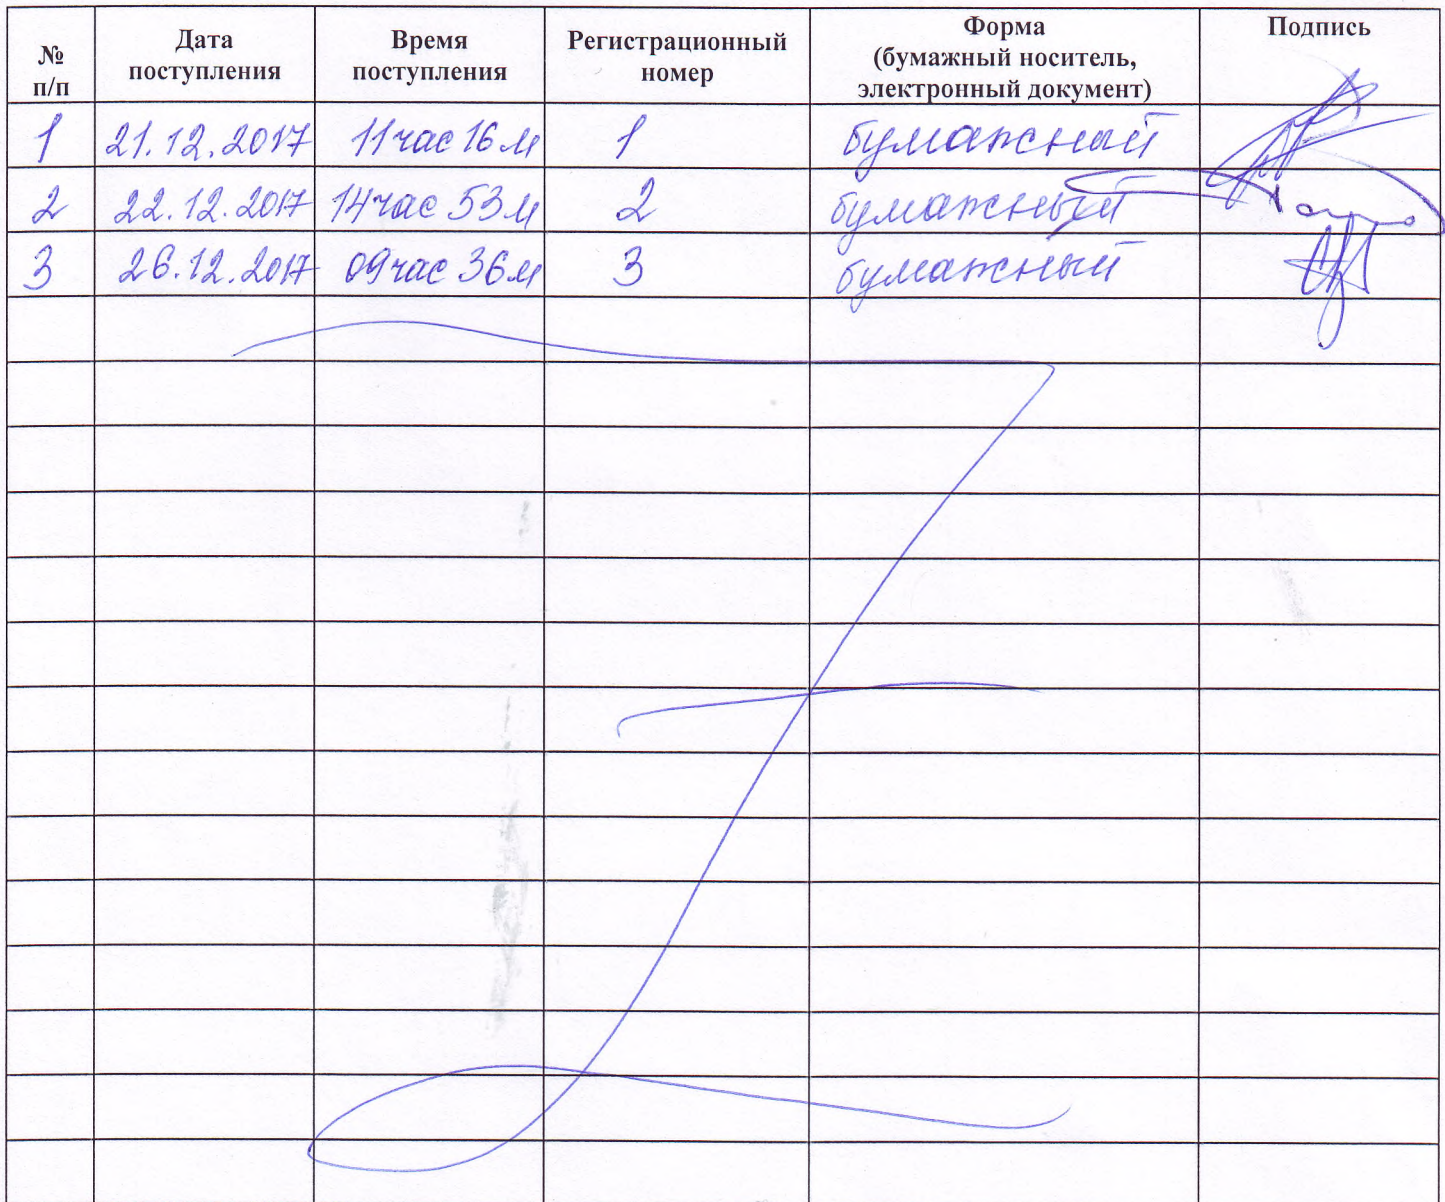 № п/п Дата поступления Время поступления Регистрационный номер Форма (бумажный носитель, электронный документ) Подпись
1 21.12.2017 11 час 16 м 1 бумажный
2 22.12.2017 14 час 53 м 2 бумажный
3 26.12.2017 09 час 36 м 3 бумажный